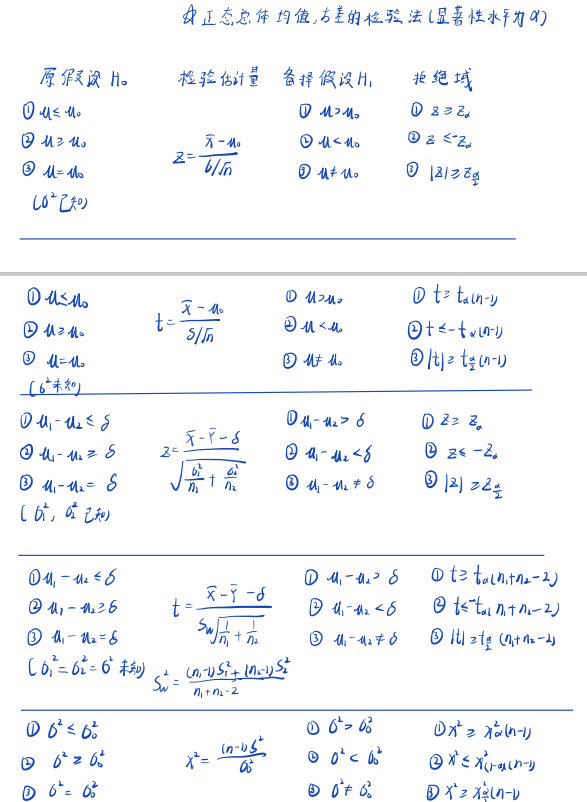 ☆正态总体均值,方差的检验法(显著性水平为α)
原假设H₀ 检验估计量 备择假设H₁ 拒绝域
① u≤u₀ ① u>u₀ ① z≥z_α
② u≥u₀ z=(x̄-u₀)/(σ/√n) ② u<u₀ ② z≤-z_α
③ u=u₀ ③ u≠u₀ ③ |z|≥z_{α/2}
(σ²已知)
① u≤u₀ ① u>u₀ ① t≥t_α(n-1)
② u≥u₀ t=(x̄-u₀)/(s/√n) ② u<u₀ ② t≤-t_α(n-1)
③ u=u₀ ③ u≠u₀ ③ |t|≥t_{α/2}(n-1)
(σ²未知)
① u₁-u₂≤δ ① u₁-u₂>δ ① z≥z_α
② u₁-u₂≥δ z=(x̄-Ȳ-δ)/√(σ₁²/n₁+σ₂²/n₂) ② u₁-u₂<δ ② z≤-z_α
③ u₁-u₂=δ ③ u₁-u₂≠δ ③ |z|≥z_{α/2}
(σ₁², σ₂²已知)
① u₁-u₂≤δ ① u₁-u₂>δ ① t≥t_α(n₁+n₂-2)
② u₁-u₂≥δ t=(x̄-Ȳ-δ)/(S_w√(1/n₁+1/n₂)) ② u₁-u₂<δ ② t≤-t_α(n₁+n₂-2)
③ u₁-u₂=δ ③ u₁-u₂≠δ ③ |t|≥t_{α/2}(n₁+n₂-2)
(σ₁²=σ₂²=σ²未知) S_w²=((n₁-1)S₁²+(n₂-1)S₂²)/(n₁+n₂-2)
① σ²≤σ₀² ① σ²>σ₀² ① x²≥x²_α(n-1)
② σ²≥σ₀² x²=(n-1)S²/σ₀² ② σ²<σ₀² ② x²≤x²_{(1-α)}(n-1)
③ σ²=σ₀² ③ σ²≠σ₀² ③ x²≥x²_{α/2}(n-1)